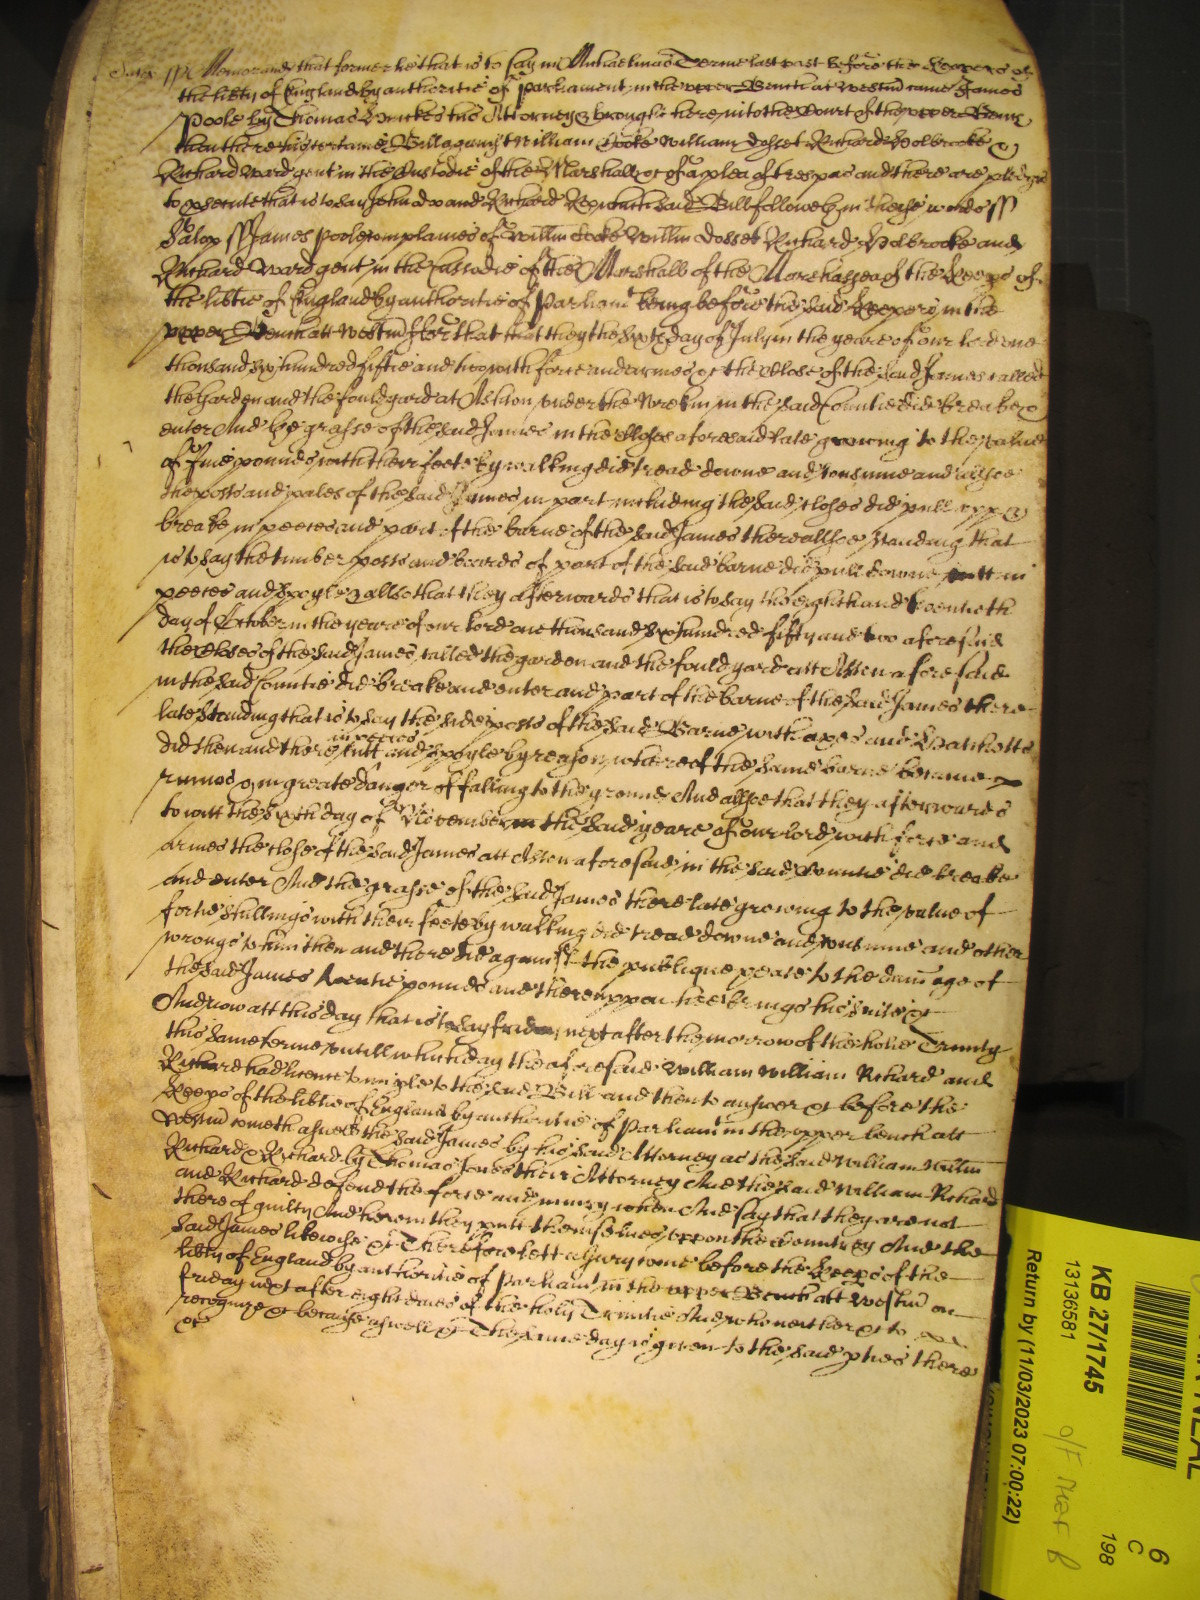 Salop ss Memorand that formerlie that is to say in Michaelmas Terme last past before the Keepers of
the libty of England by authoritie of Parliament in the upper Bench at Westm came James
Poole by Thomas his Attorney & brought here into the Court of the upper Bench
then there his certaine Bill against William Cocke William Dosset Richard Holbrooke &
Richard Ward gent in the Custodie of the Marshall &c of a plea of trespas and there are pledges
to psecute that is to say John Doo and Richard Roo which said Bill followeth in theise words ss
Salop ss James Poole complaines of Willm Cocke Willm Dosset Richard Holbrooke and
Richard Ward gent in the Custodie of the Marshall of the Marshalsea of the Keeps of
the libtie of England by authoritie of Parliamt being before the said Keepers in the
upper Bench att Westm for that that they the sixth day of July in the yeare of our lord one
thousand six hundred fiftie and two with force and armes &c the Close of the said James called
the Garden and the fould yard at Aston under the Wrekin in the said Countie did breake &
enter And the grasse of the said James in the Closes aforesaid late growing to the value
of five pounds with their feete by walking did tread downe and consume and allsoe
the posts and pales of the said James in part including the said closes did pull upp &
breake in peeces and part of the barne of the said James there allsoe standing that
is to say the timber posts and boards of part of the said barne did pull downe cutt in
peeces and spoyle & allso that they afterwards that is to say the eighth and twentieth
day of October in the yeare of our lord one thousand six hundred fifty and two aforesaid
the closes of the said James called the garden and the fould yard att Aston aforesaid
in the said Countie did breake and enter and part of the barne of the said James there
late standing that is to say the side posts of the said Barne with axes and Hatchetts
in peeces
did then and there cutt and spoyle by reason whereof the same barne became
ruinos & in greate danger of falling to the ground And allsoe that they afterwards
to witt the sixth day of November in the said yeare of our lord with force and
armes the close of the said James att Aston aforesaid in the said Countie did breake
and enter And the grasse of the said James there late growing to the value of
fortie shillings with their feete by walking did tread downe and consume and other
wrongs to him then and there did against the publique peace to the damage of
the said James twentie pounds and thereuppon hee brings his suite &c
And now att this day that is to say friday next after the morrow of the holie Trinity
this same terme untill which day the aforesaid William William Richard and
Richard had licence to imple to the said Bill and then to answer &c before the
Keeps of the libtie of England by authoritie of Parliamt in the upper bench att
Westm cometh aswell the said James by his said Attorney as the said William Willm
Richard & Richard by Thomas Jones their Attorney And the said William Richard
and Richard defend the force and iniury when And say that they are not
thereof guilty And hereon they putt themselves uppon the Countrey And the
said James likewise &c Therefore lett a Jury come before the Keeps of the
libty of England by authoritie of Parliamt in the upper Bench att Westm on
friday next after eight daies of the holy Trinitie And who neither &c to
recognize &c because aswell &c The same day is given to the said pties there
&c
KB 27/1745
13136581
Return by (11/03/2023 07:00:22)
6
C
198